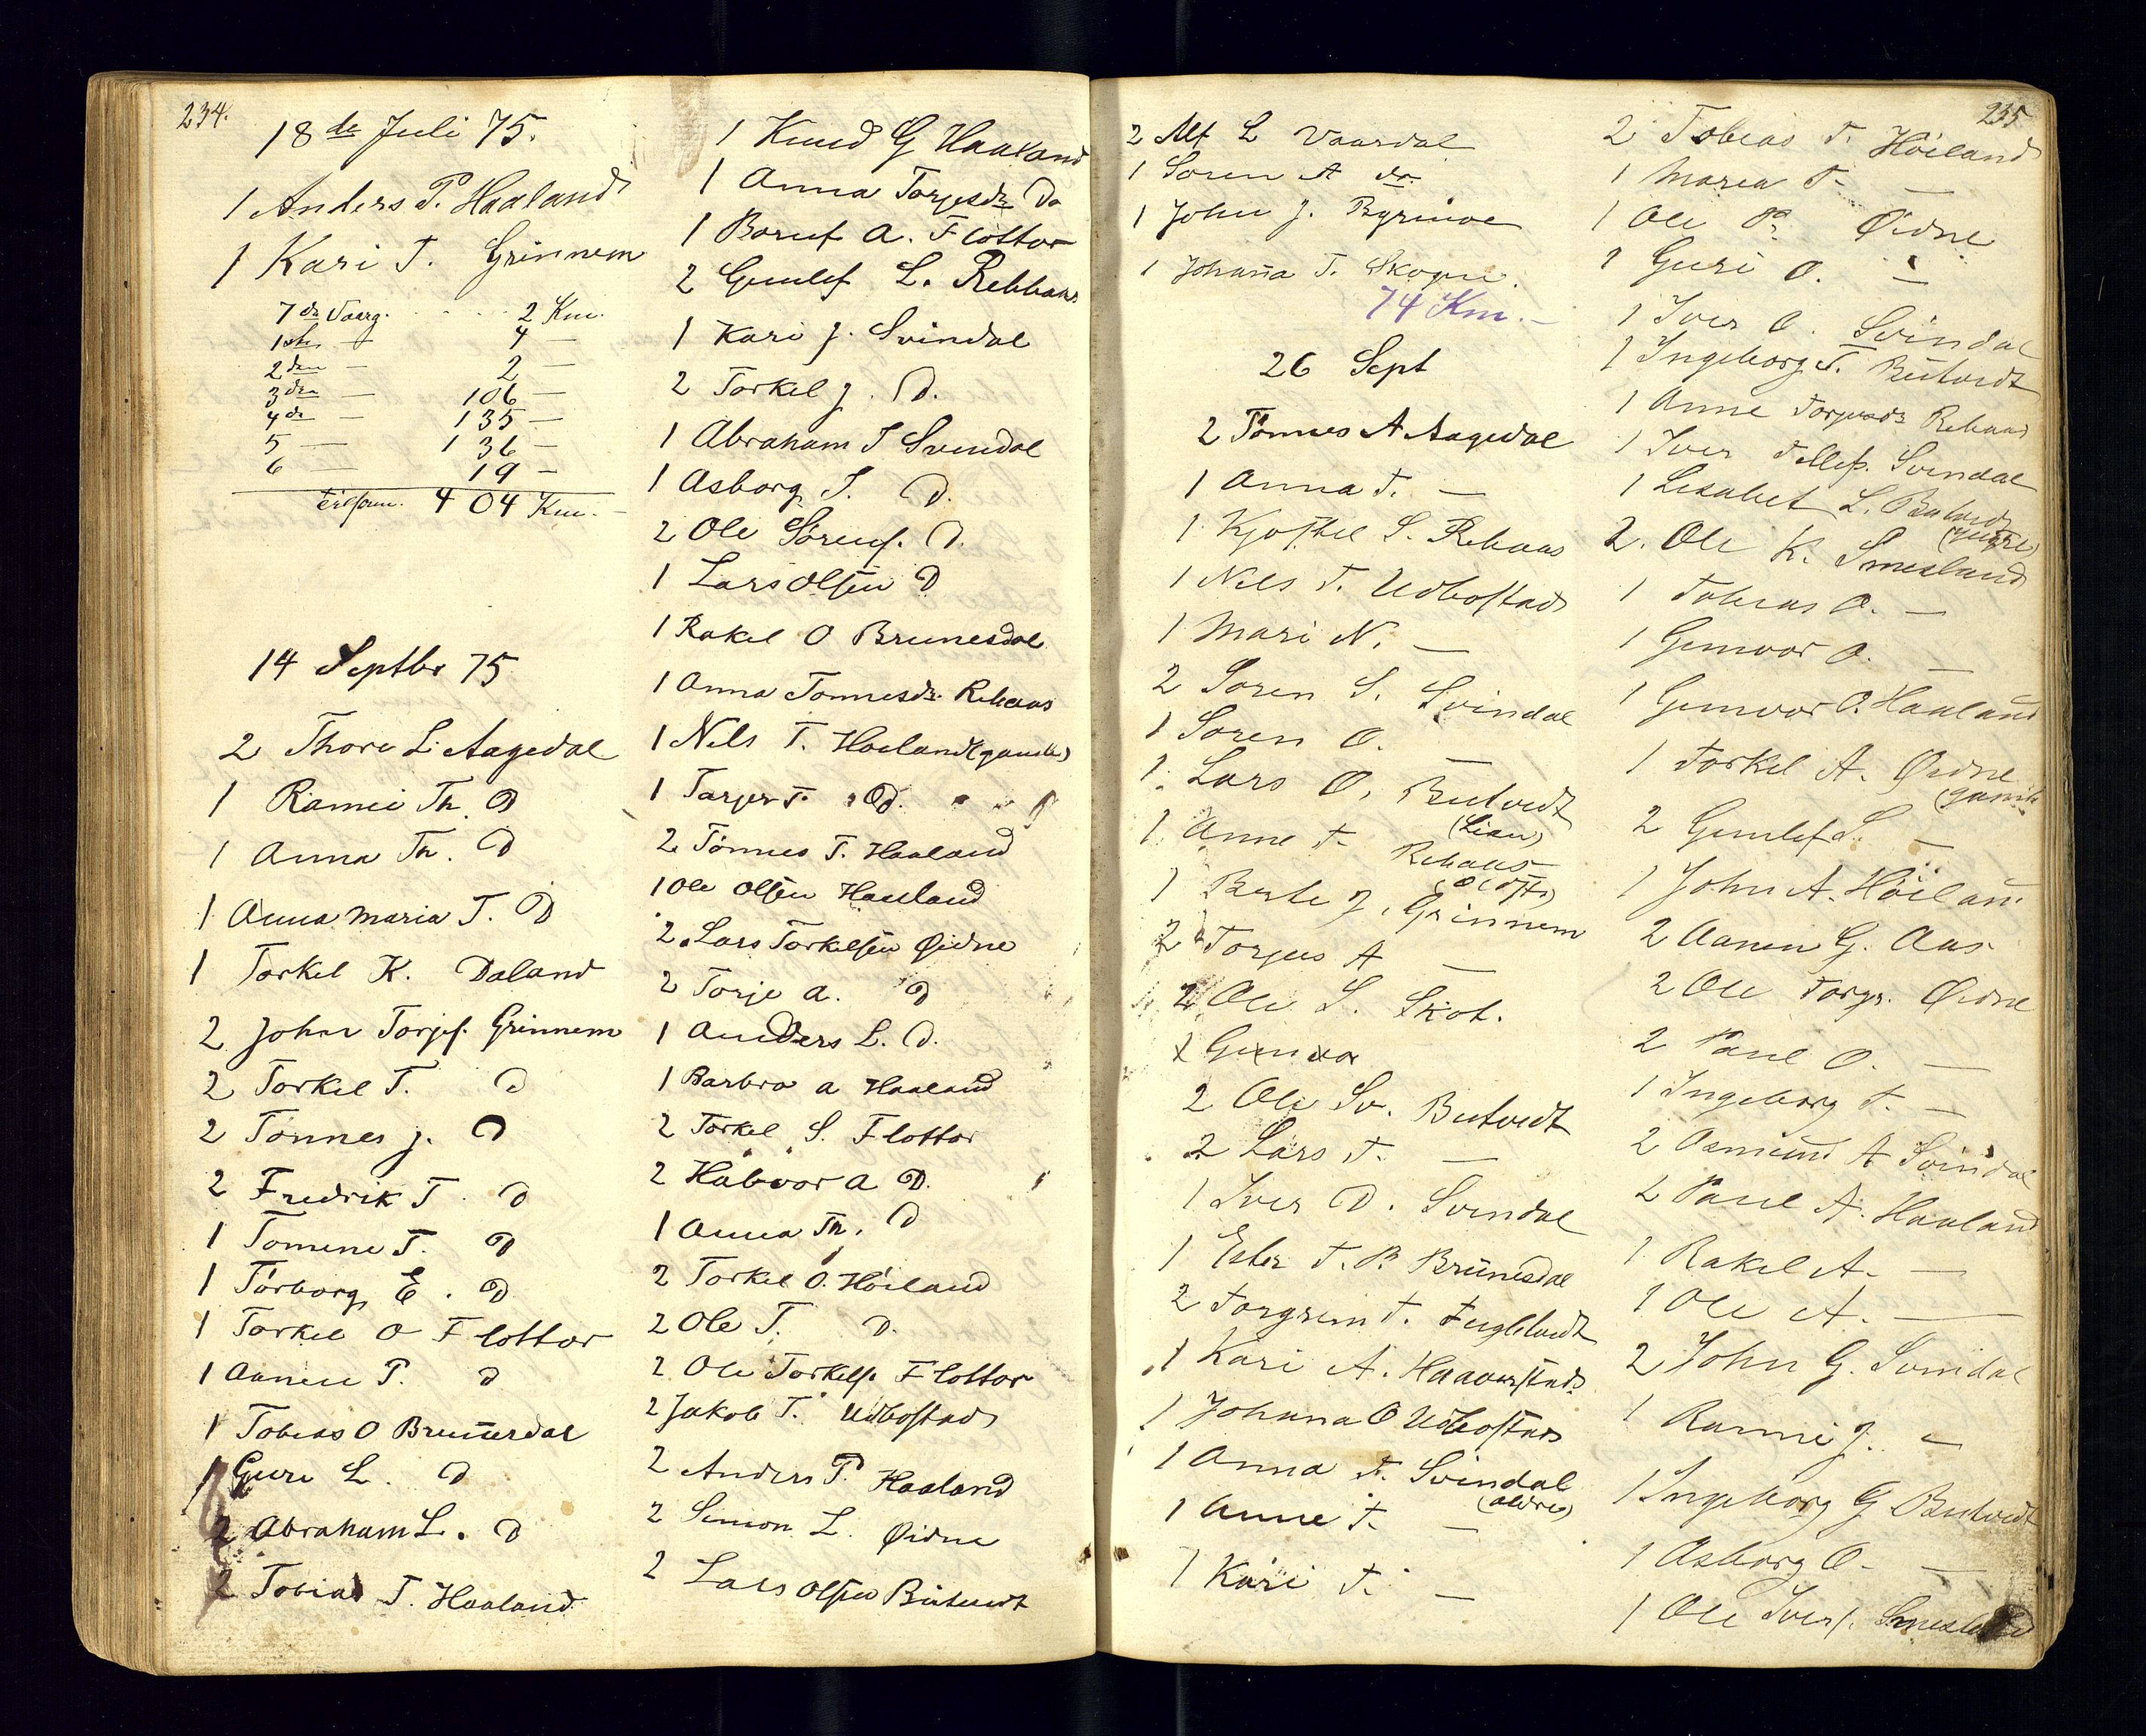 234.
18de Juli 75.
1 Anders P. Haaland
1 Kari T. Grinnem
7de Vaarg. . . . 2 Km.
1ste — 4 —
2den — 2 —
3den — 106 —
4de — 135 —
5 — 136 —
6 — 19 —
Tilsam. 404 Km. —
14 Septbr 75
2 Thore L. Aagedal
1 Ramei Th. D
1 Anna Th. D
1 Anna Maria T. D
1 Torkel K. Daland
2 John Torjes. Grinnem
2 Torkel T. D
2 Tönnes J. D
2 Fredrik T. D
1 Tomene T. D
1 Törborg E. D
1 Torkel O Flottor
1 Aanen P. D
1 Tobias O Brunerdal
1 Guri L. D
2 Abraham L. D
2 Tobias T. Haaland
1 Knud G Haaland
1 Anna Torjesdr Do
1 Boruf A. Flottor
2 Gunlef L. Rebhaas
1 Kari J. Svindal
2 Torkel J. D.
1 Abraham T Svindal
1 Asborg T. D.
2 Ole Sörens. D.
1 Lars Olsen D
1 Rakel O Brunesdal
1 Anna Tonnesdr Rehaas
1 Nels T. Hoeland (gamle)
1 Tarjer T. D.
2 Tönnes T. Haaland
1 Ole Olsen Haaland
2 Lars Torkelsen Øidne
2 Torje A. D
1 Anders L. D.
1 Barbro A Haaland
2 Torkel S. Flottor
2 Håvor A D.
1 Anna Th. D
2 Torkel O. Höiland
2 Ole T. D.
2 Ole Torkels. Flottor
2 Jakob T. Udbostads
2 Anders P. Haaland
2 Simon L. Øidne
2 Lars Olsen Butvedt
2 Alf L Vaardal
1 Soren A do.
1 John J. Byrinoe
1 Johana T. Skogen.
74 Km. —
26 Sept
2 Tönnes A Aagedal
1 Anna T. —
1 Kjøstel S. Rehaas
1 Nils T. Udbostads
1 Mari N. —
2 Soren S. Svindal
1 Soren O. —
1 Lars O, Butvedt
(Lien)
1 Anne T. Rehaas
1 Berte J. Grinnem
2 Torjus A —
2 Ole S. Skot.
2 Ole Sv. Butvedt
2 Lars T. —
1 Iver D. Svindal
1 Ester T. P. Brunesdal
2 Torgrim T. Fuglstvedt
1 Kari A. Haaverstads
1 Johana O Udbostads
1 Anna T. Svindal
(ældre)
1 Anne T. —
1 Kari T. —
235
2 Tobias T. Höiland
1 Maria T. —
1 Ole P. Øidne
1 Guri O. —
1 Iver O. Svindal
1 Ingeborg T. Butvedt
1 Anne Torjusdr Rehaas
1 Iver Tellefs. Svindal
1 Lisabet L. Butvedt
(yngre)
2. Ole K. Smeland
1 Tobias O. —
1 Gunvor O. —
1 Gunvor O. Haaland
1 Torkel A. Øidne
(gamle)
2 Gunlef S. —
1 John A. Höiland
2 Aanen G. Aas
2 Ole Torgr. Øidne
2 Paul O. —
1 Ingeborg T. —
2 Osmund A Svindal
2 Paul A. Haaland
1 Rakel A. —
1 Ole A. —
2 John G. Svindal
1 Ranni J. —
1 Ingeborg G Butvedt
1 Asborg O. —
1 Ole Ivers. Smeland